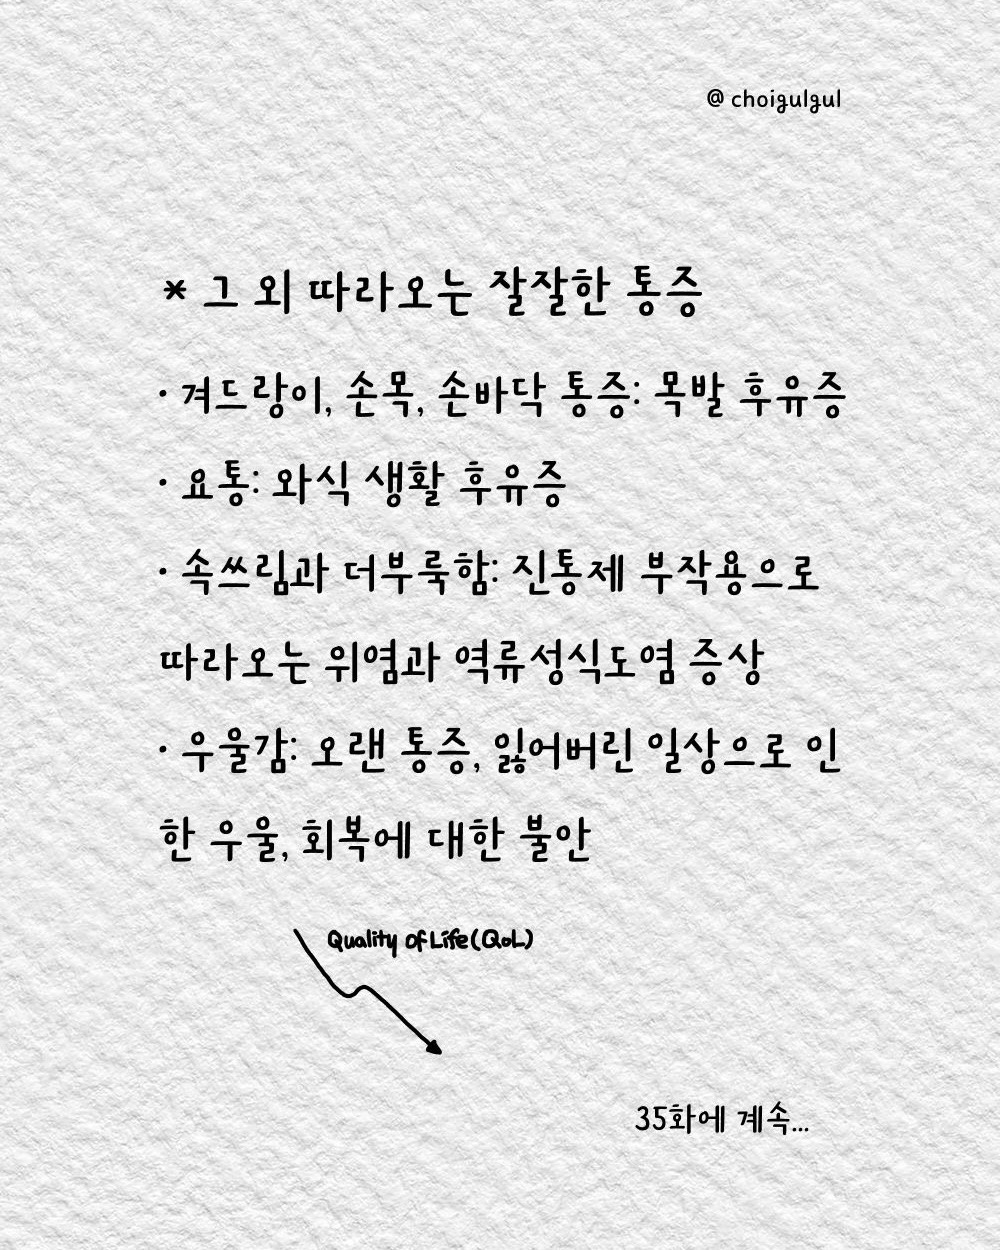 @ choigulgul
* 그 외 따라오는 잘잘한 통증
· 겨드랑이, 손목, 손바닥 통증: 목발 후유증
· 요통: 와식 생활 후유증
· 속쓰림과 더부룩함: 진통제 부작용으로
따라오는 위염과 역류성식도염 증상
· 우울감: 오랜 통증, 잃어버린 일상으로 인
한 우울, 회복에 대한 불안
Quality of Life(QoL)
35화에 계속...